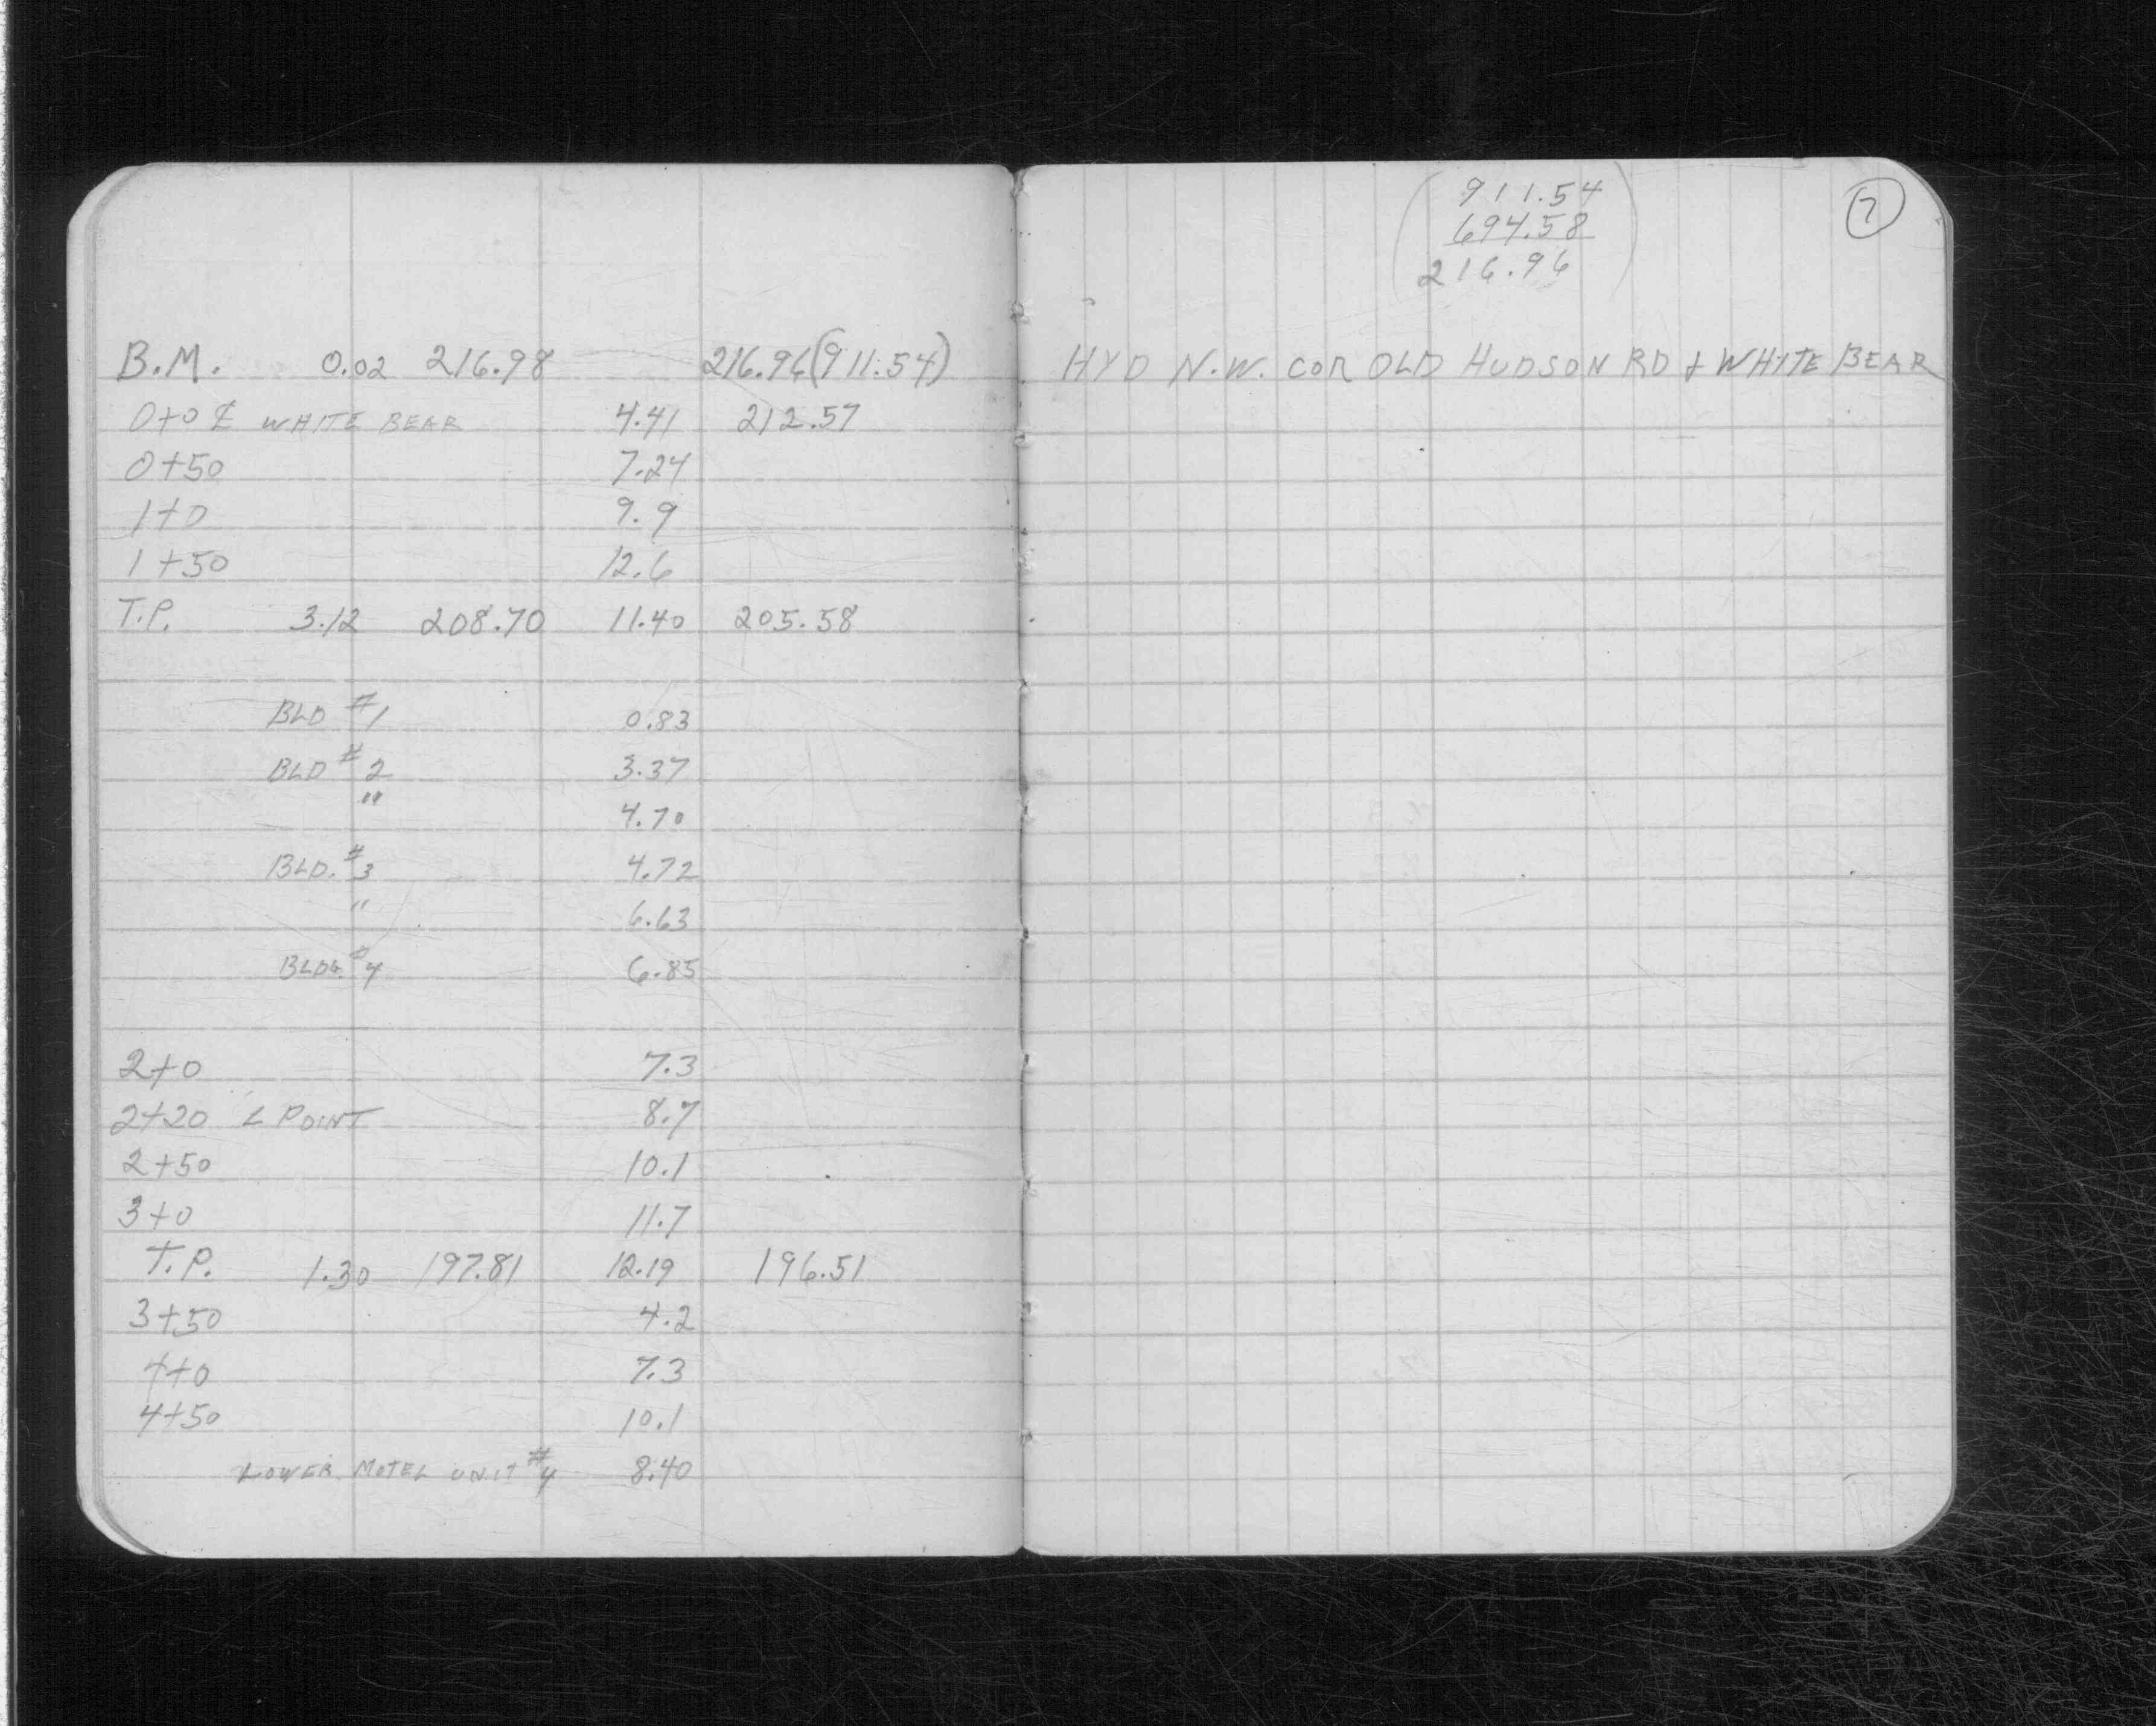 B.M. 0.02 216.98 216.96(911.54)
0+0 ℄ WHITE BEAR 4.41 212.57
0+50 7.24
1+0 9.9
1+50 12.6
T.P. 3.12 208.70 11.40 205.58
BLD #1 0.83
BLD #2 3.37
" 4.70
BLD. #3 4.72
" 6.63
BLDG. #4 6.85
2+0 7.3
2+20 ∠ POINT 8.7
2+50 10.1
3+0 11.7
T.P. 1.30 197.81 12.19 196.51
3+50 4.2
4+0 7.3
4+50 10.1
LOWER MOTEL UNIT #4 8.40
7
911.54
694.58
216.96
HYD N.W. COR OLD HUDSON RD & WHITE BEAR